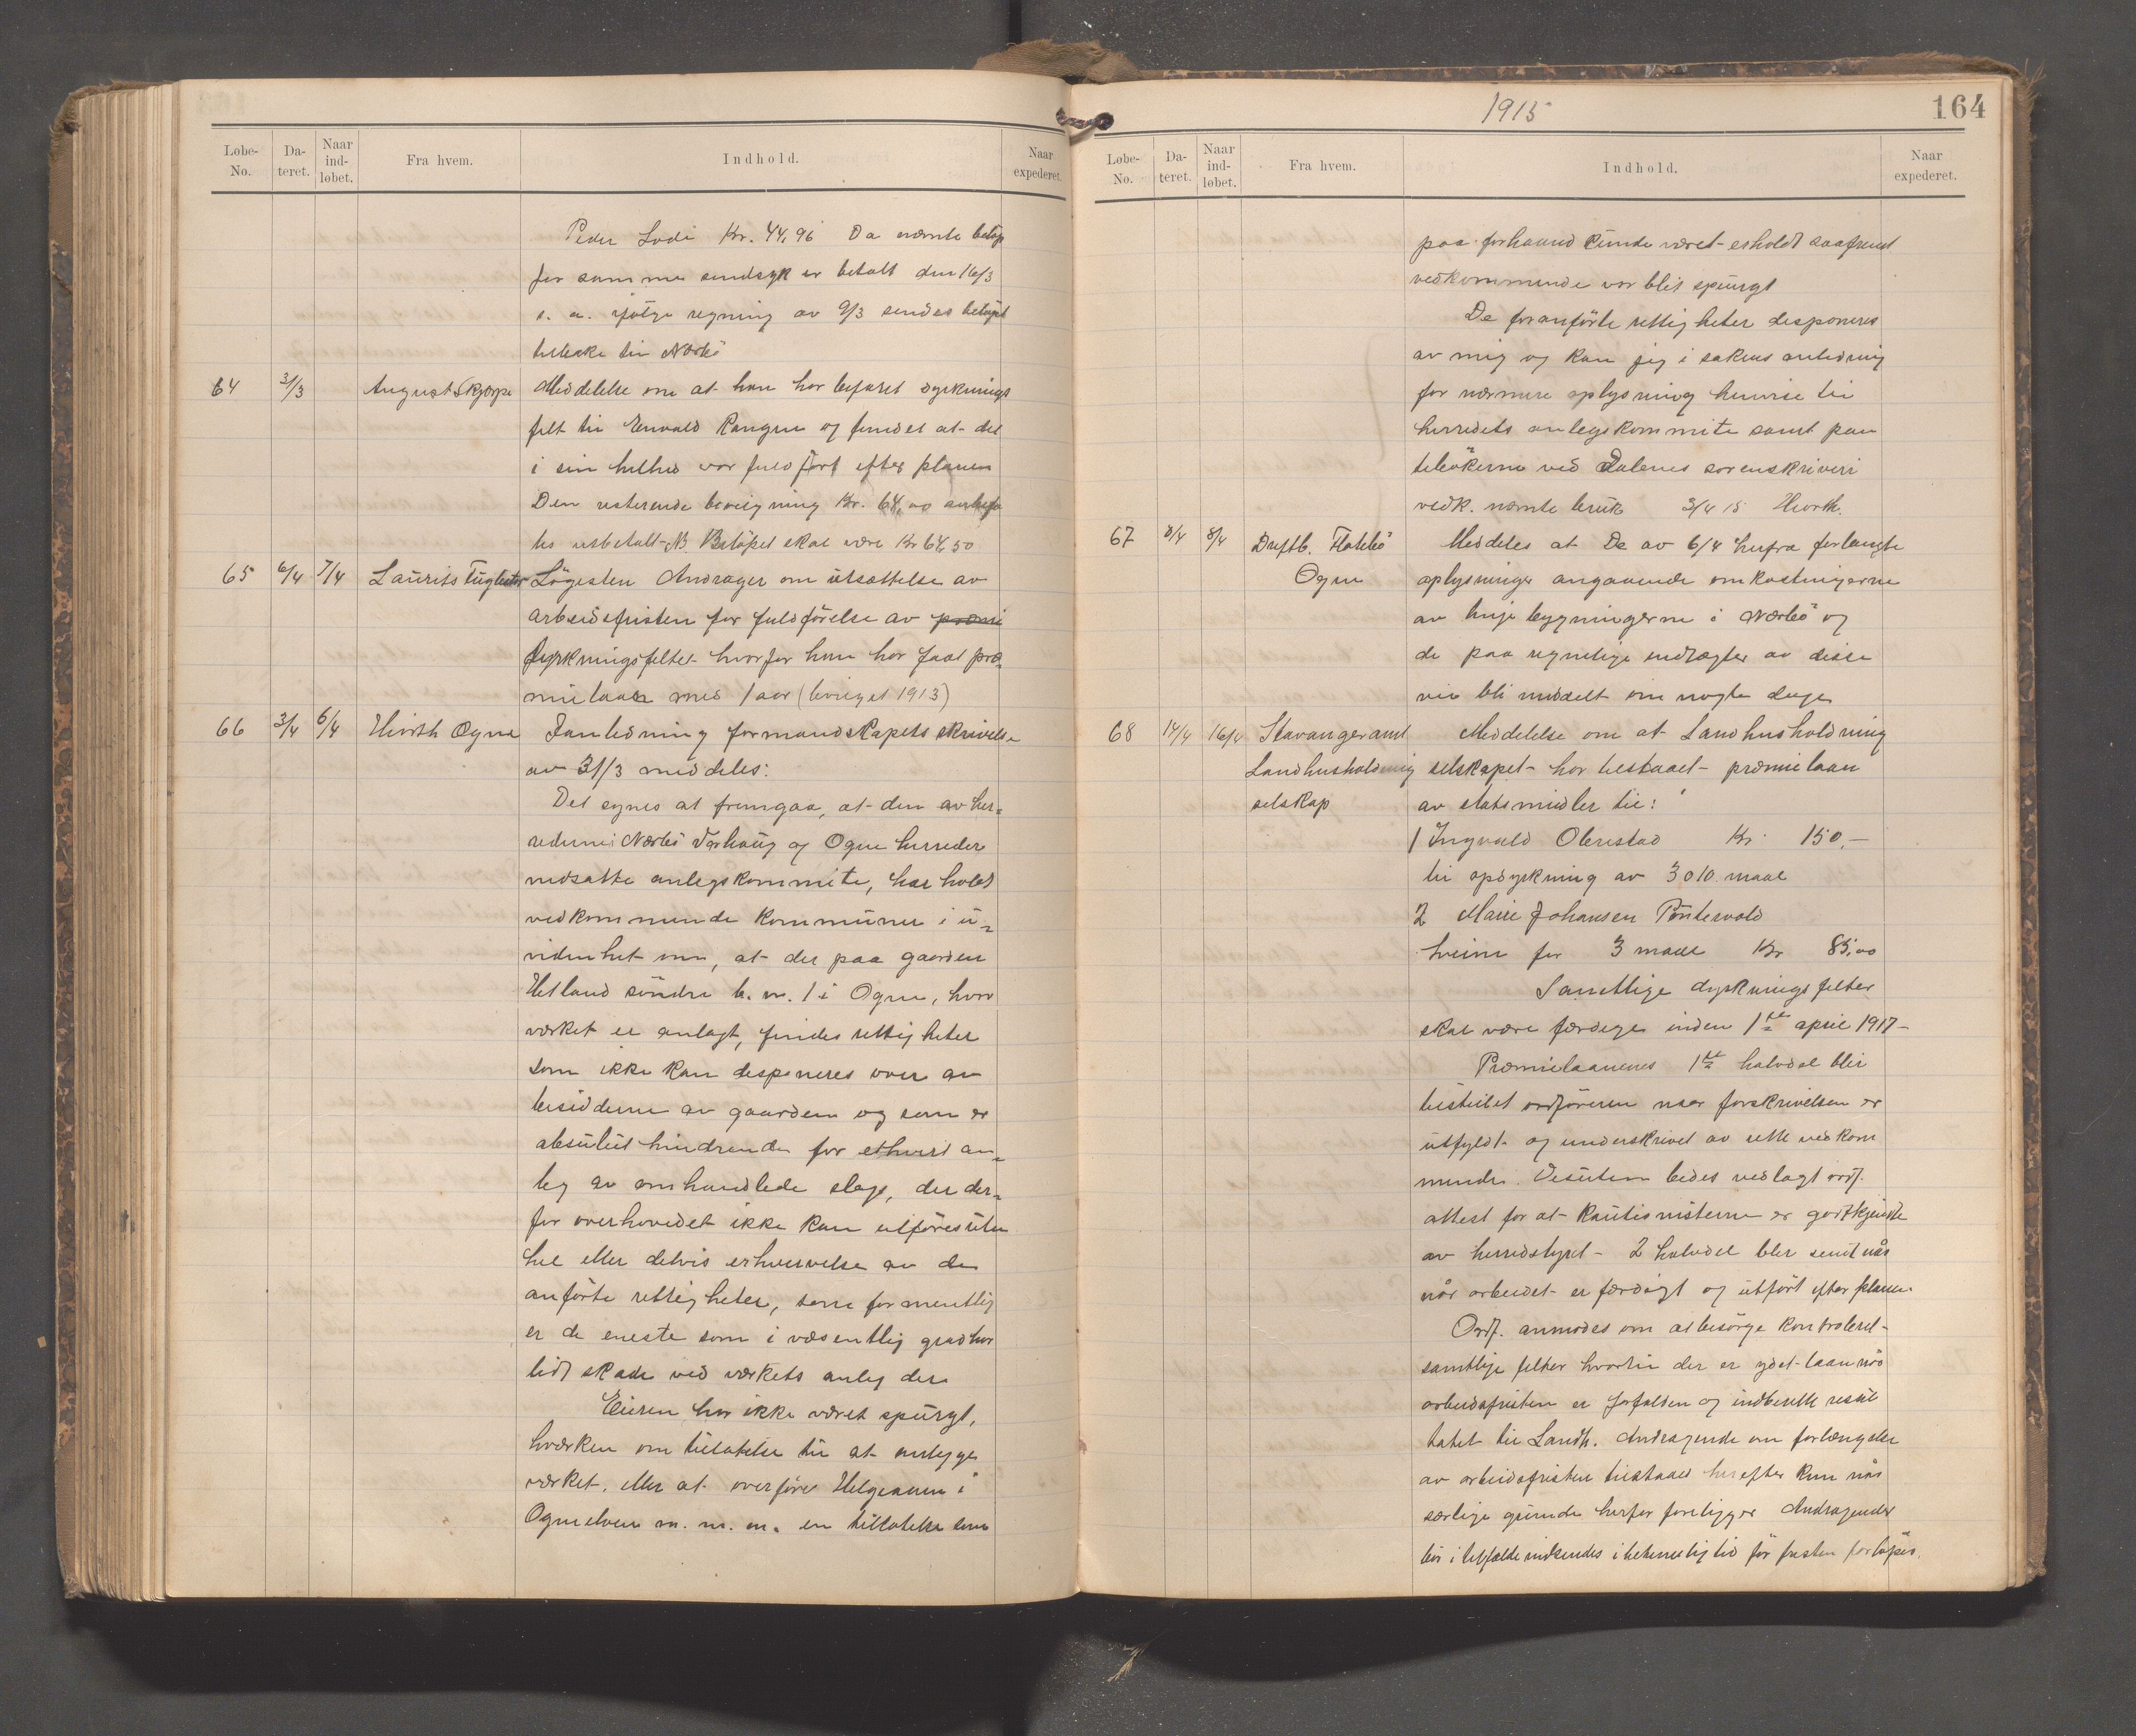 Løbe-No. Da-teret. Naar ind-løbet. Fra hvem. Indhold. Naar expederet.
Peder Lode Kr. 44,96 Da nævnte beløp
for samme sindsyk er betalt den 16/3
s. a. ifølge regning av 9/3 sendes beløpet
tilbake til Nærbö
64 3/3 August Skjærpe Meddelelse om at han har befaret dyrknings
felt til Rangen og fundet at det
i sin helhed var fuldført efter planen
Den resterende bevilgning Kr. 64,00 anbefa
les utbetalt NB. Beløpet skal være Kr 64,50
65 6/4 7/4 Laurits Fuglestad Lögesten Andrager om utsættelse av
arbeidsfristen for fuldförelse av præmi
dyrkningsfeltet hvorfor han har faat præ
mielaan med 1 aar (bevilget 1913)
66 3/4 6/4 Hiorth Ogne I anledning formandskapets skrivelse
av 31/3 meddeles:
Det synes at fremgaa, at den av her=
rederne Nærbö Varhaug og Ogne herreder
nedsatte anlegskommite, har holdt
vedkommende kommuner i u=
videnhet om, at der paa gaarden
Hetland söndre b. no. 1 i Ogne, hvor
værket er anlagt, findes rettigheter
som ikke kan desponeres over av
besidderne av gaarden og som er
absolut hindrende for ethvert an=
leg av omhandlede slags, der der=
for overhovedet ikke kan utføres uten
hel eller delvis erhvervelse av de
anförte rettigheter, som formentlig
er de eneste som i væsentlig grad har
lidt skade ved værkets anleg der
Eieren har ikke været spurgt,
hverken om tillatelse til at anlegge
værket, eller at overføre Helgeaaen i
Ogneelven m. m. m. en tillatelse som
1915
164
Løbe-No. Da-teret. Naar ind-løbet. Fra hvem. Indhold. Naar expederet.
paa forhaand kunde været erholdt saafremt
vedkommende var blit spurgt
De foranförte rettigheter desponeres
av mig og kan jeg i sakens anledning
for nærmere oplysning henvise til
herredets anlegskommite samt pan
tebökerne ved Dalenes sorenskriveri
vedk. nævnte bruk 3/4 15 Hiorth.
67 8/4 8/4 Driftb. Flakkö Meddeles at De av 6/4 herfra forlangte
Ogne oplysninger angaaende omkostningerne
av linje bygningerne i Nærbö og
de paa regnelige indtægter av disse
vil bli meddelt om nogle dage
68 14/4 16/4 Stavanger amt Meddelelse om at Landhusholdning
Landhusholdning selskapet har tilstaaet præmielaan
selskap av statsmidler til:
1 Ingvald Obrestad Kr. 150,—
til opdyrkning av 3010 maal
2 Marie Johansen
hveim for 3 maal Kr 85,00
Samtlige dyrkningsfelter
skal være færdige inden 1ste april 1917—
Præmielaanenes 1ste halvdel blir
tilstillet ordføreren naar forskrivelsen er
utfyldt og underskrivet av rette vedkom
mende. Desuten bedes vedlagt ordf.
attest for at kautionisterne er godtkjendte
av herredstyret — 2 halvdel blir sendt når
når arbeidet er færdigt og utført efter planen.
Ordf. anmodes om at besørge kontroleret
samtlige felter hvortil der er ydet laan når
arbeidsfristen er forfalden og indberette resul
tatet til Landh. Andragende om forlængelse
av arbeidsfristen tilstaaes herefter kun når
særlige grunde herfor foreligger Andragender
bör i tilfælde indsendes i betimelig tid för fristen forløper.